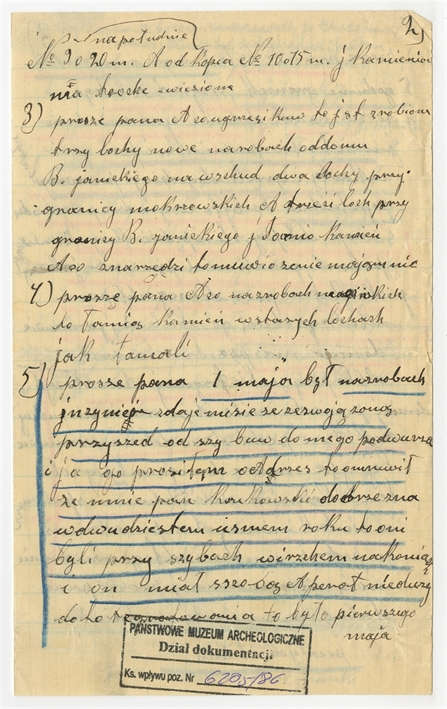 2)
na południe
№ 9 o 20 m. A od kopca № 10 o 15 m. j kamienio
nia troche zwiezione
3) prosze pana A co to jst zrobione
trzy lochy nowe narobach oddomu
B. janickiego nawschud dwa lochy przy
granicy mokrzowskich A trzeci loch przy
granicy B. janickiego j kamień
A co znarzędzi tomuwio zenie majo nic
4) proszę pana A co nazrobach
to łamio kamień wstarych lochach
jak łamali
5) prosze pana 1 maja był nazrobach
jnzynier zdaje misie ze zeswojo zono
przyszed od szybuw do mego podwurza
i ja go prosiłem o adres to omuwił
że mnie pan kowkowski dobrze zna
wdwudziestem usmem roku to oni
byli przy szybach wirzchem nakoniach
i on miał sobo Aparat nieduzy
do to to było pierwszego
maja
PAŃSTWOWE MUZEUM ARCHEOLOGICZNE
Dział dokumentacji
Ks. wpływu poz. Nr 6295/86